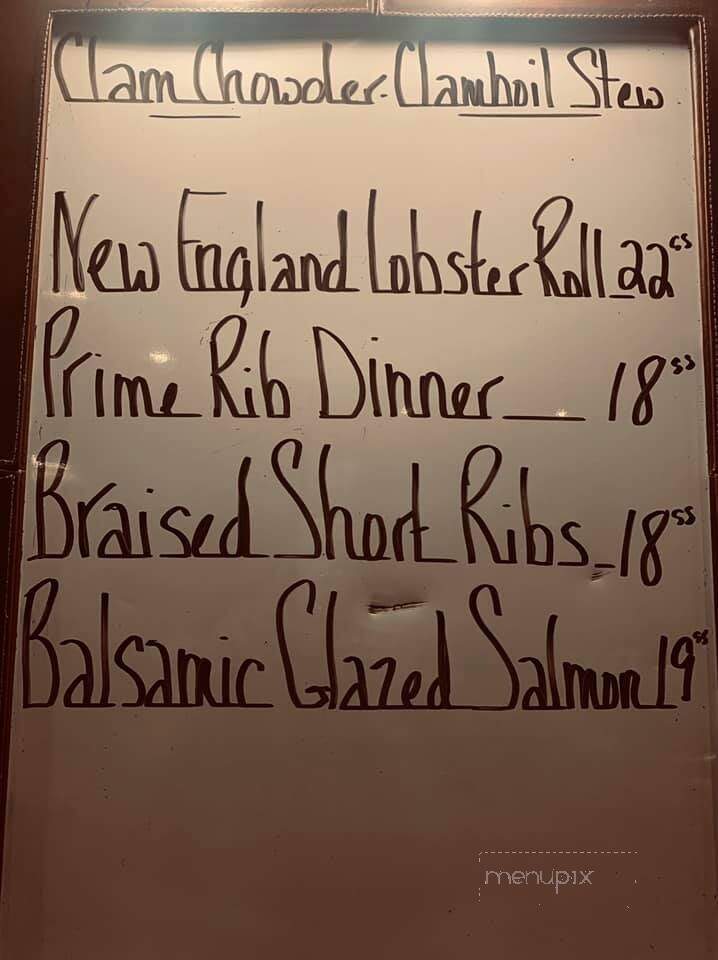 Clam Chowder - Clamboil Stew
New England Lobster Roll _ 22 ss
Prime Rib Dinner __ 18 ss
Braised Short Ribs _ 18 ss
Balsamic Glazed Salmon 19 ss
menupix